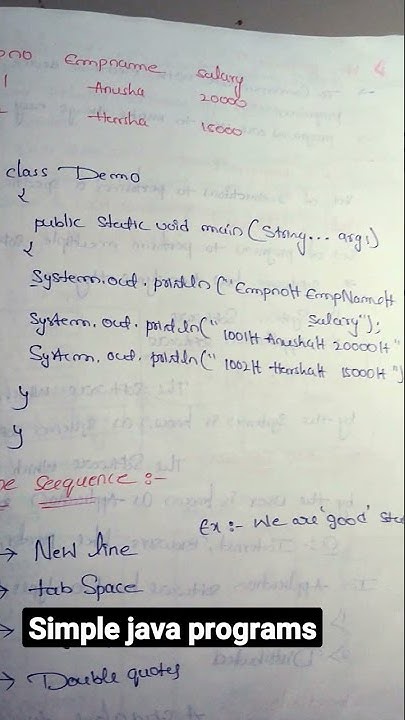 ono Empname Salary
1 Anusha 20000
Harsha 15000
4
class Demo
{
public static void main (String... args)
{
System.out.println ("Empno\t EmpName\t
Salary");
System.out.println(" 1001\t Anusha\t 20000\t "
System.out.println(" 1002\t Harsha\t 15000\t ")
}
}
pe Seequence :-
Ex :- We are 'good' stu
→ New line
→ tab Space
→
Simple java programs
→ Double quotes